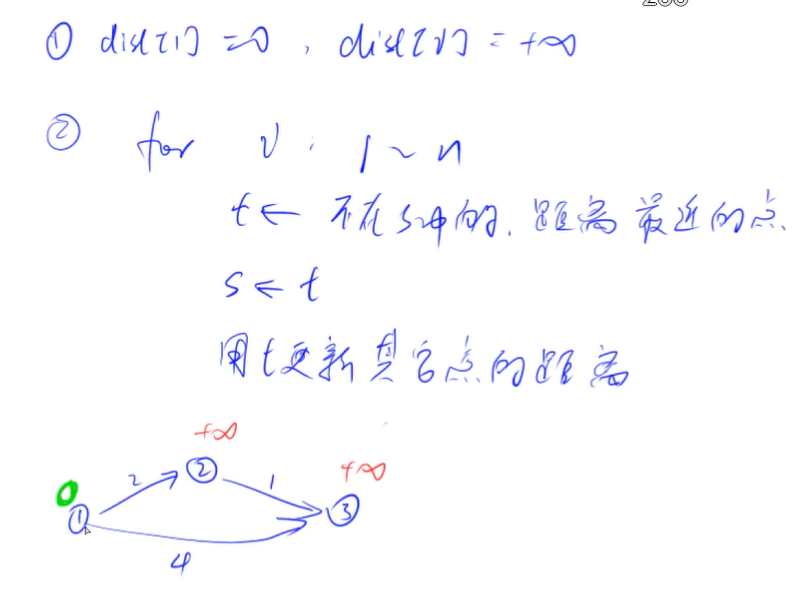 ① dist[1] = 0 , dist[v] = +∞
② for v : 1 ~ n
t ← 不在s中的, 距离最近的点.
s ← t
用t更新其它点的距离
+∞
2 ② 1 +∞
0
① ③
4